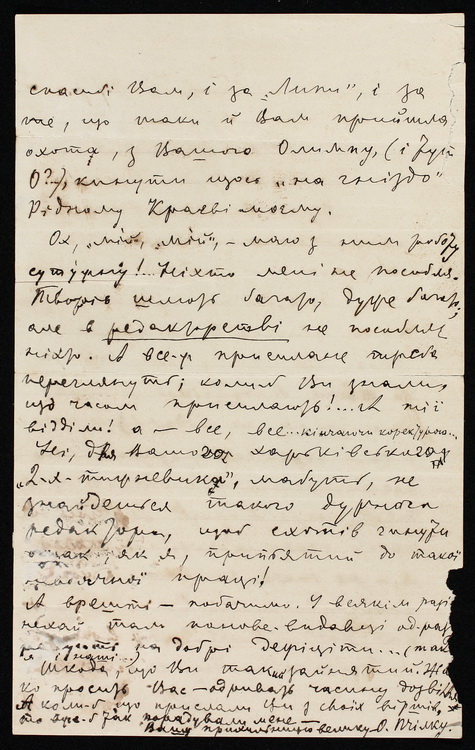 спасибі Вам, і за „Липи", і за
те, що таки й Вам прийшла
охота, з Вашого Олимпу, (і тут
О?..), кинути щось „на гніздо"
Рідному Краєві моєму.
Ох, „мій", „мій", – маю з ним роботу
сутужну!.. Ніхто мені не пособля.
Творів шлють багато, дуже багато,
але в редакторстві не пособляє
ніхто. А все-ж прислане треба
переглянуть; коли-б Ви знали,
що часом присилають!... А тії
відділи! а – все, все... кінчаючи коректурою...
Ні, для Вашого харьківського
„2-я-тижневика", мабуть, не
знайдеться такого дурного
редактора, щоб схотів гинути
так, як я, припьятий до такої
праці!
А врешті – побачимо. У всякім разі
нехай там нове видавці одразу
на добрі дефіціти... (так
Шкода, що Ви так зайнятий. Жал-
ко просить Вас – одривать часину дозвілля
А коли-б що прислали Ви з своїх віршів,
то дуже-б так порадували мене –
Вашу прихильницю велику О. Пчілку.